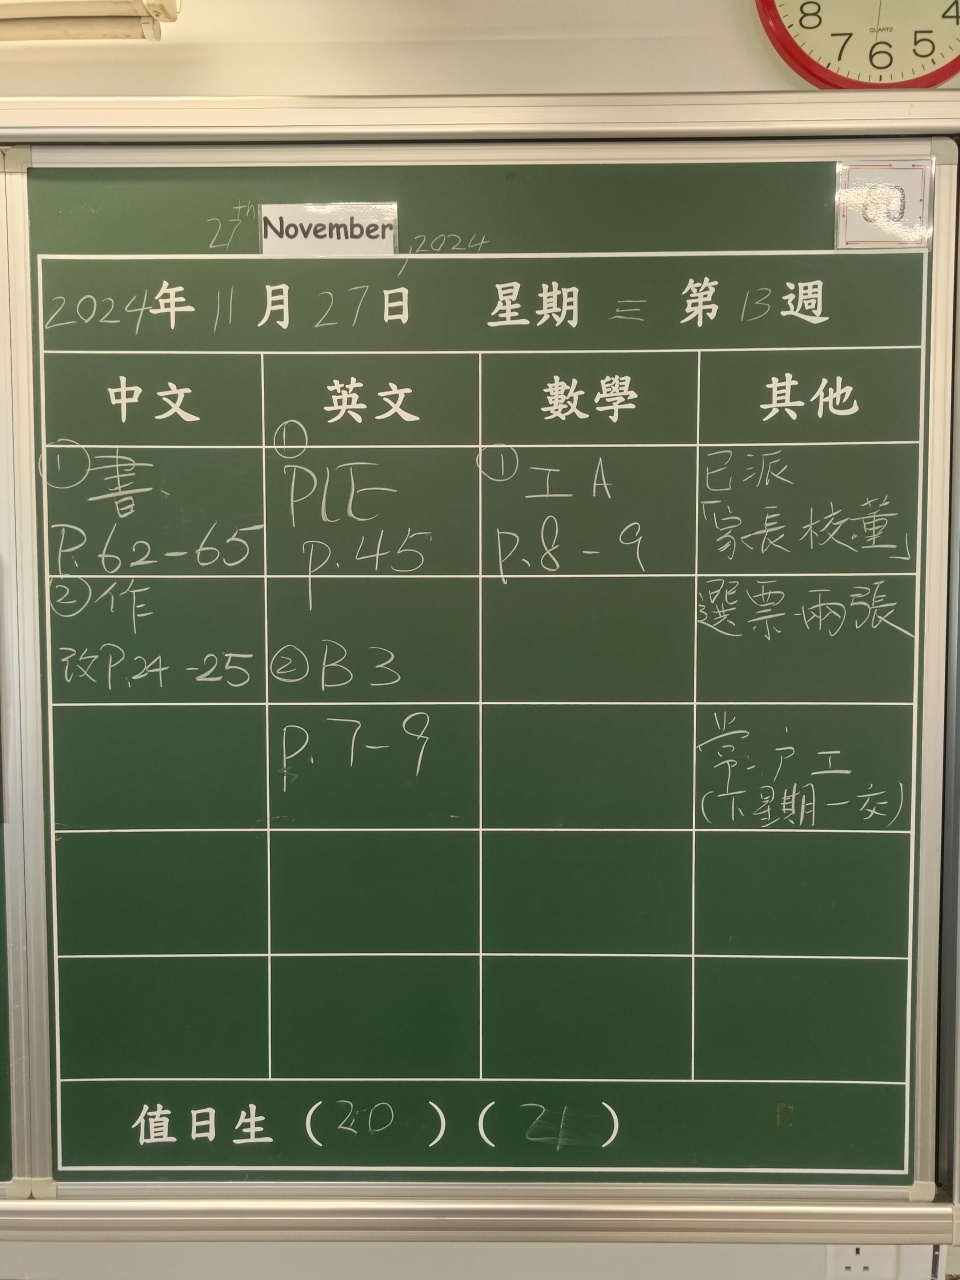 8 7 6 5 4
QUARTZ
27th November, 2024
2024年11月27日 星期三 第13週
中文 英文 數學 其他
①書
P.62-65
②作
改P.24-25
①
PLE
p.45
②B3
p.7-9
①工A
p.8-9
已派
「家長校董」
選票兩張
常.戶工
(下星期一交)
值日生(20)(21)